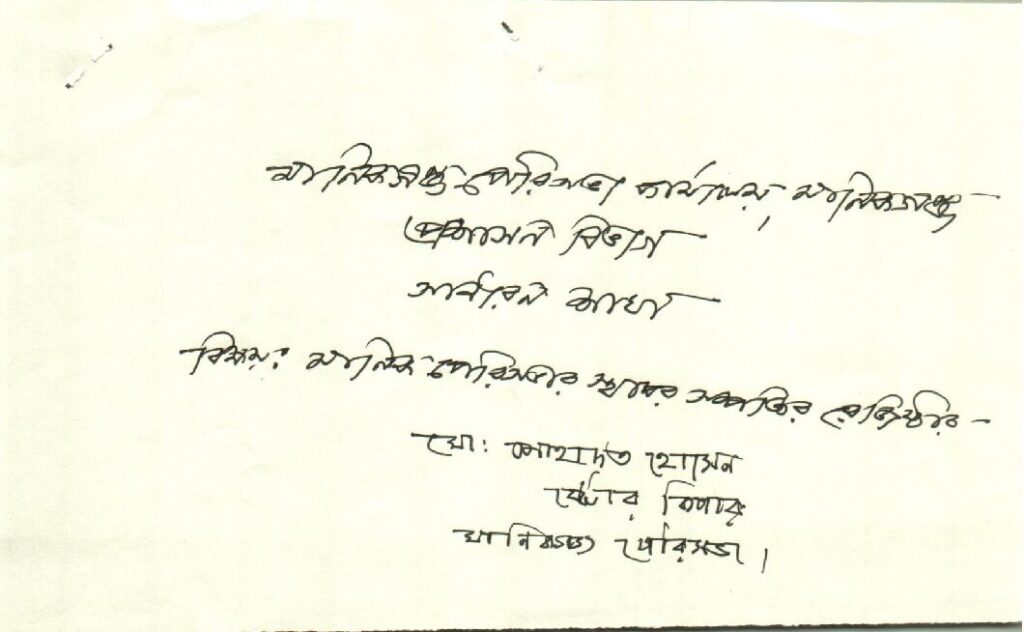 মানিকগঞ্জ পৌরসভা কার্যালয়, মানিকগঞ্জ
প্রশাসন বিভাগ
সাধারন শাখা
বিষয়: মানিকগঞ্জ পৌরসভার স্থাবর সম্পত্তির রেজিষ্টার
মো: শাহাদত হোসেন
ষ্টোর কিপার
মানিকগঞ্জ পৌরসভা।